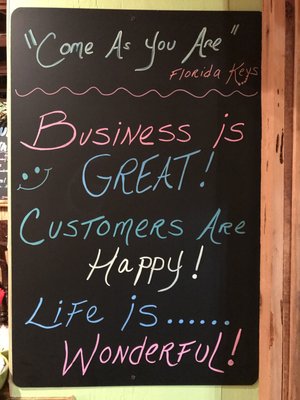 "Come As You Are"
Florida Keys
Business is
GREAT!
Customers Are
Happy!
Life is......
Wonderful!